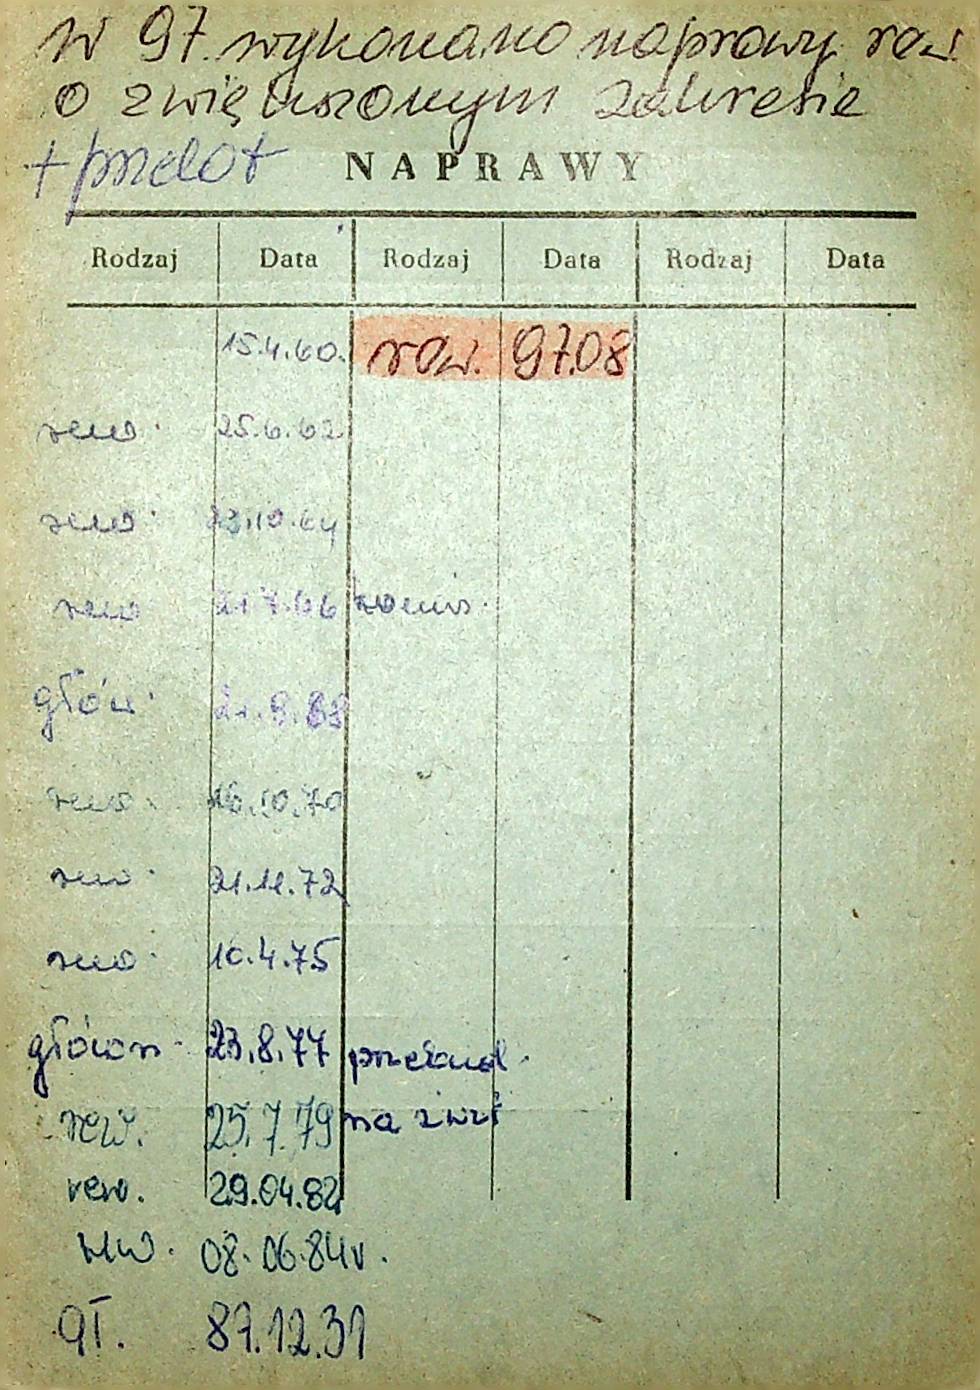 W 97. wykonano naprawy rew
o zwiększonym zakresie
+ przelot
NAPRAWY
Rodzaj Data Rodzaj Data Rodzaj Data
15.4.60. rew. 97.08
rew. 25.6.62
rew. 23.10.64
rew 21.7.66
głów. 21.9.68
rew. 16.10.70
rew. 21.11.72
rew. 10.4.75
główn. 23.8.77
rew. 25.7.79 na
rew. 29.04.82
rew. 08.06.84r.
gł. 87.12.31